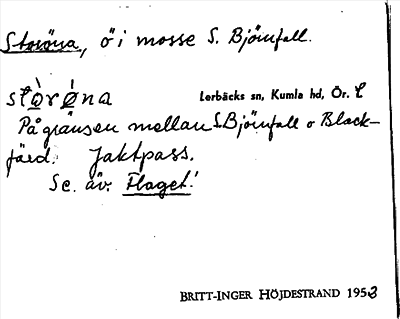 Storöna, ö i mosse S. Björnfall.
stò̱rǿ̱na Lerbäcks sn, Kumla hd, Ör. l
På gränsen mellan S. Björnfall o Black-
fjärd. Jaktpass.
Se. äv. Flaget!
BRITT-INGER HÖJDESTRAND 1953